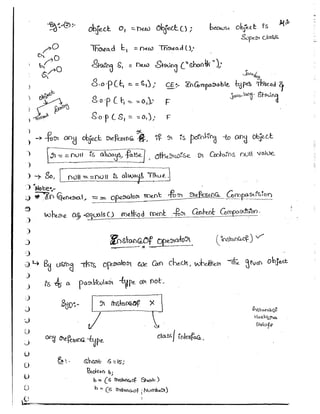 Eg:-②:- object o, = new object(); because object is
Super class
Thread t, = new Thread();
String S, = new String ("shanth");
S.o.p(t, == S,); CE:- InComparable types Thread &
java.lang.String
object
Thread String
S.o.p(t, == o,); F
S.o.p(S, == o,); F
→ for any object reference r, if r is pointing to any object
r == null is always, false, otherwise r Contains null value.
→ So, null == null is always True.
Note:-
In General, == operator ment for reference Comparision
where as equals() method ment for Content Comparision.
Instanceof operator (instanceof)
↳ By using this operator we Can check, whether the given object
is of a particular type or not.
Syn:- r instanceof X
any reference type class/ interface.
Eg:- short S=15;
Boolean b;
b = (S instanceof Short)
b = (S instanceof Number)